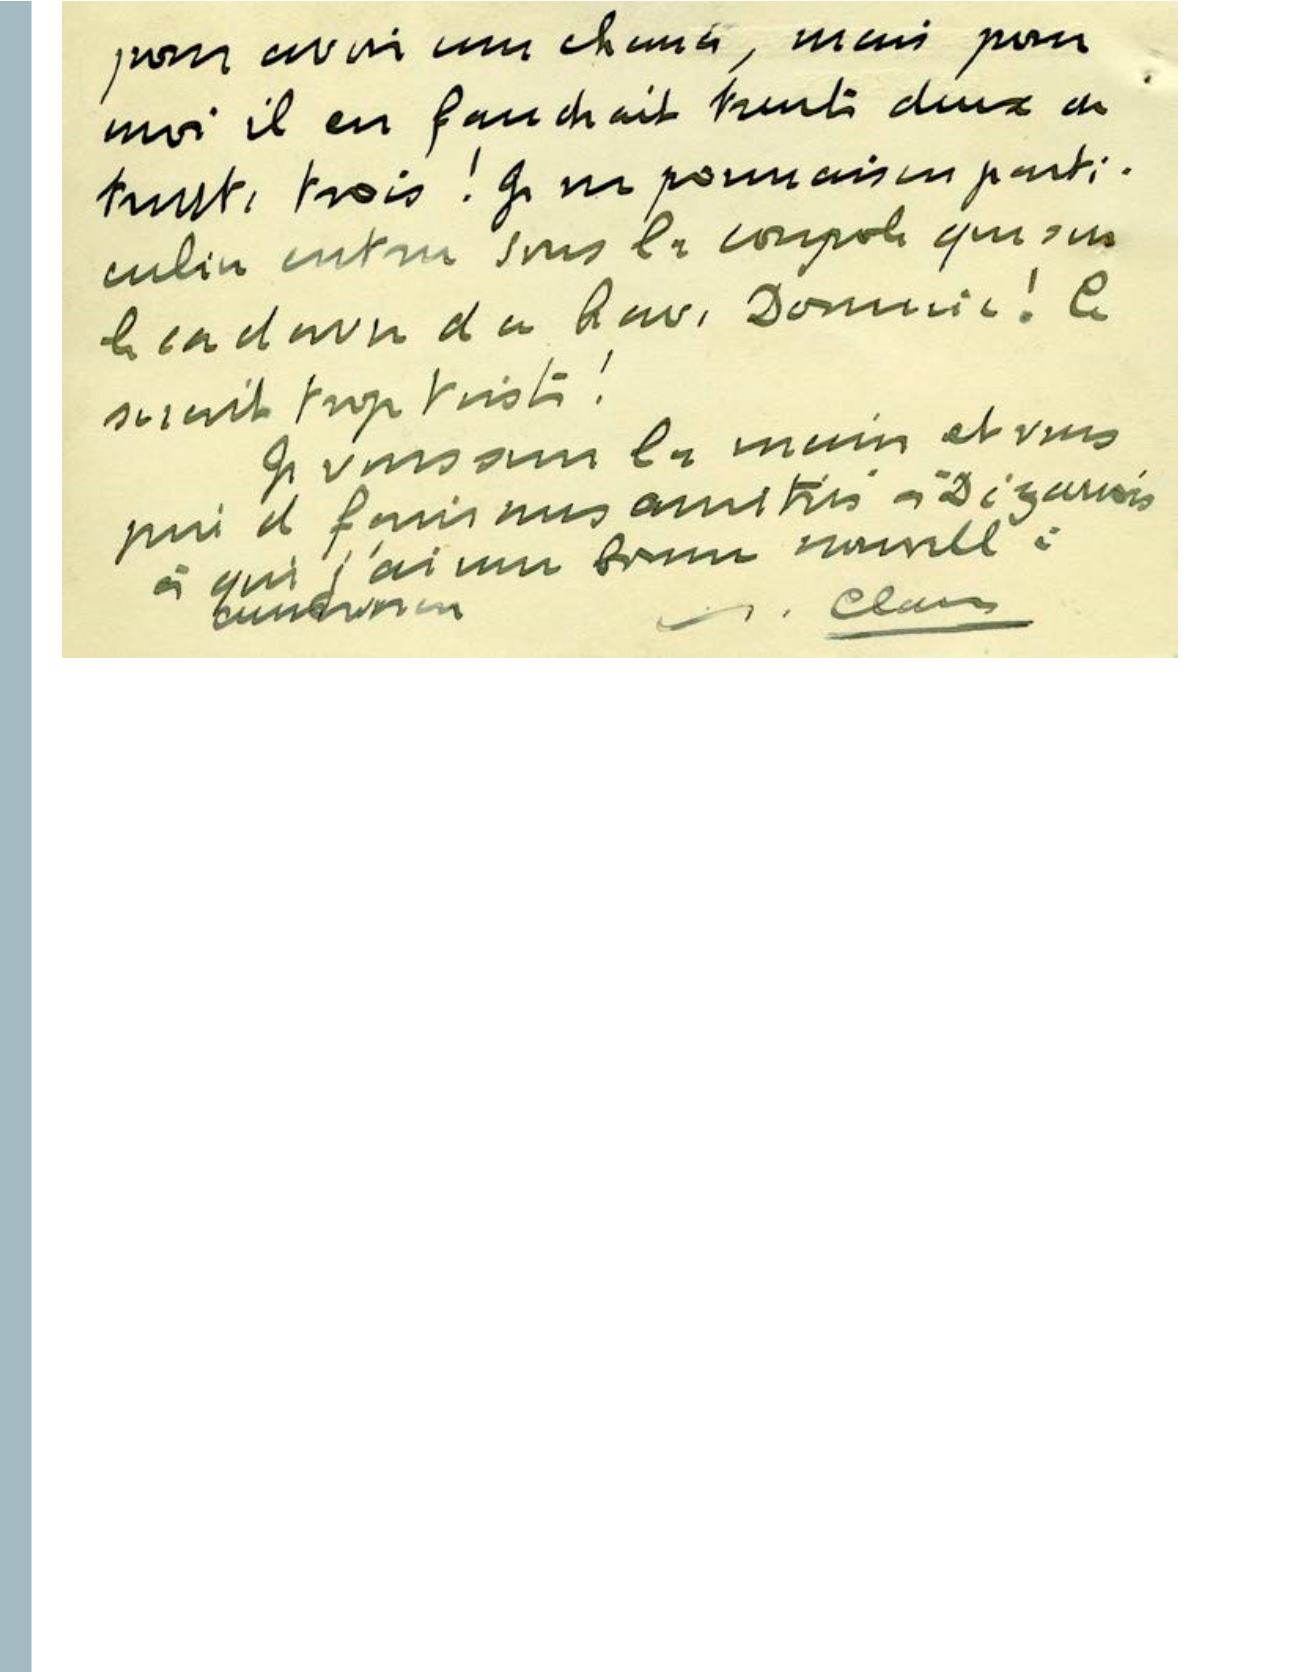 pour avoir une chance, mais pour
moi il en faudrait trente deux ou
trente trois ! Je ne pourrais en parti-
culier entrer sous la coupole que sur
le cadavre de René Doumic ! Ce
serait trop triste !
Je vous serre la main et vous
prie d faire mes amitiés à Dizarvois
à qui j'ai une bonne nouvelle à
announcer
P. Claudel